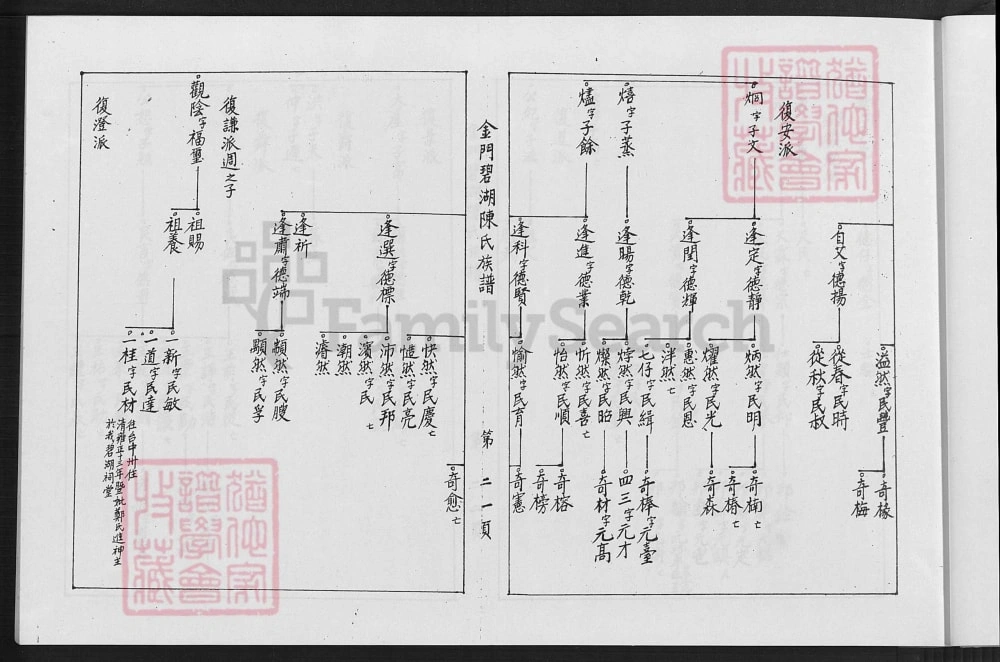 復安派
烱字子文
熺字子蒸
燼字子餘
自艾字德揚
逢定字德靜
逢閏字德輝
逢暘字德乾
逢進字德業
逢科字德賢
溢然字民豐
從春字民時
從秋字民叔
炳然字民明
燿然字民光
惠然字民恩
泮然亡
七仔字民緝
焞然字民興
燦然字民昭
忻然字民喜亡
怡然字民順
愉然字民育
奇椽
奇梅
奇楠亡
奇椿亡
奇森
奇棒字元臺
四三字元才
奇材字元高
奇榕
奇榜
奇憲
金門碧湖陳氏族譜
第二一頁
逢選字德標
逢祈
逢肅字德端
快然字民慶亡
愷然字民亮
沛然字民邦
濱然字民亡
潮然
濬然
頮然字民膄
顯然字民孚
奇愈亡
復謙派週之子
觀陰字福璽
祖賜
祖養
一新字民敏
一道字民達
一柱字民材
往台中州住
清雍正十三年暨妣鄭氏進神主
於我碧湖祠堂
復澄派
FamilySearch
譜學會
收藏
譜學會
收藏